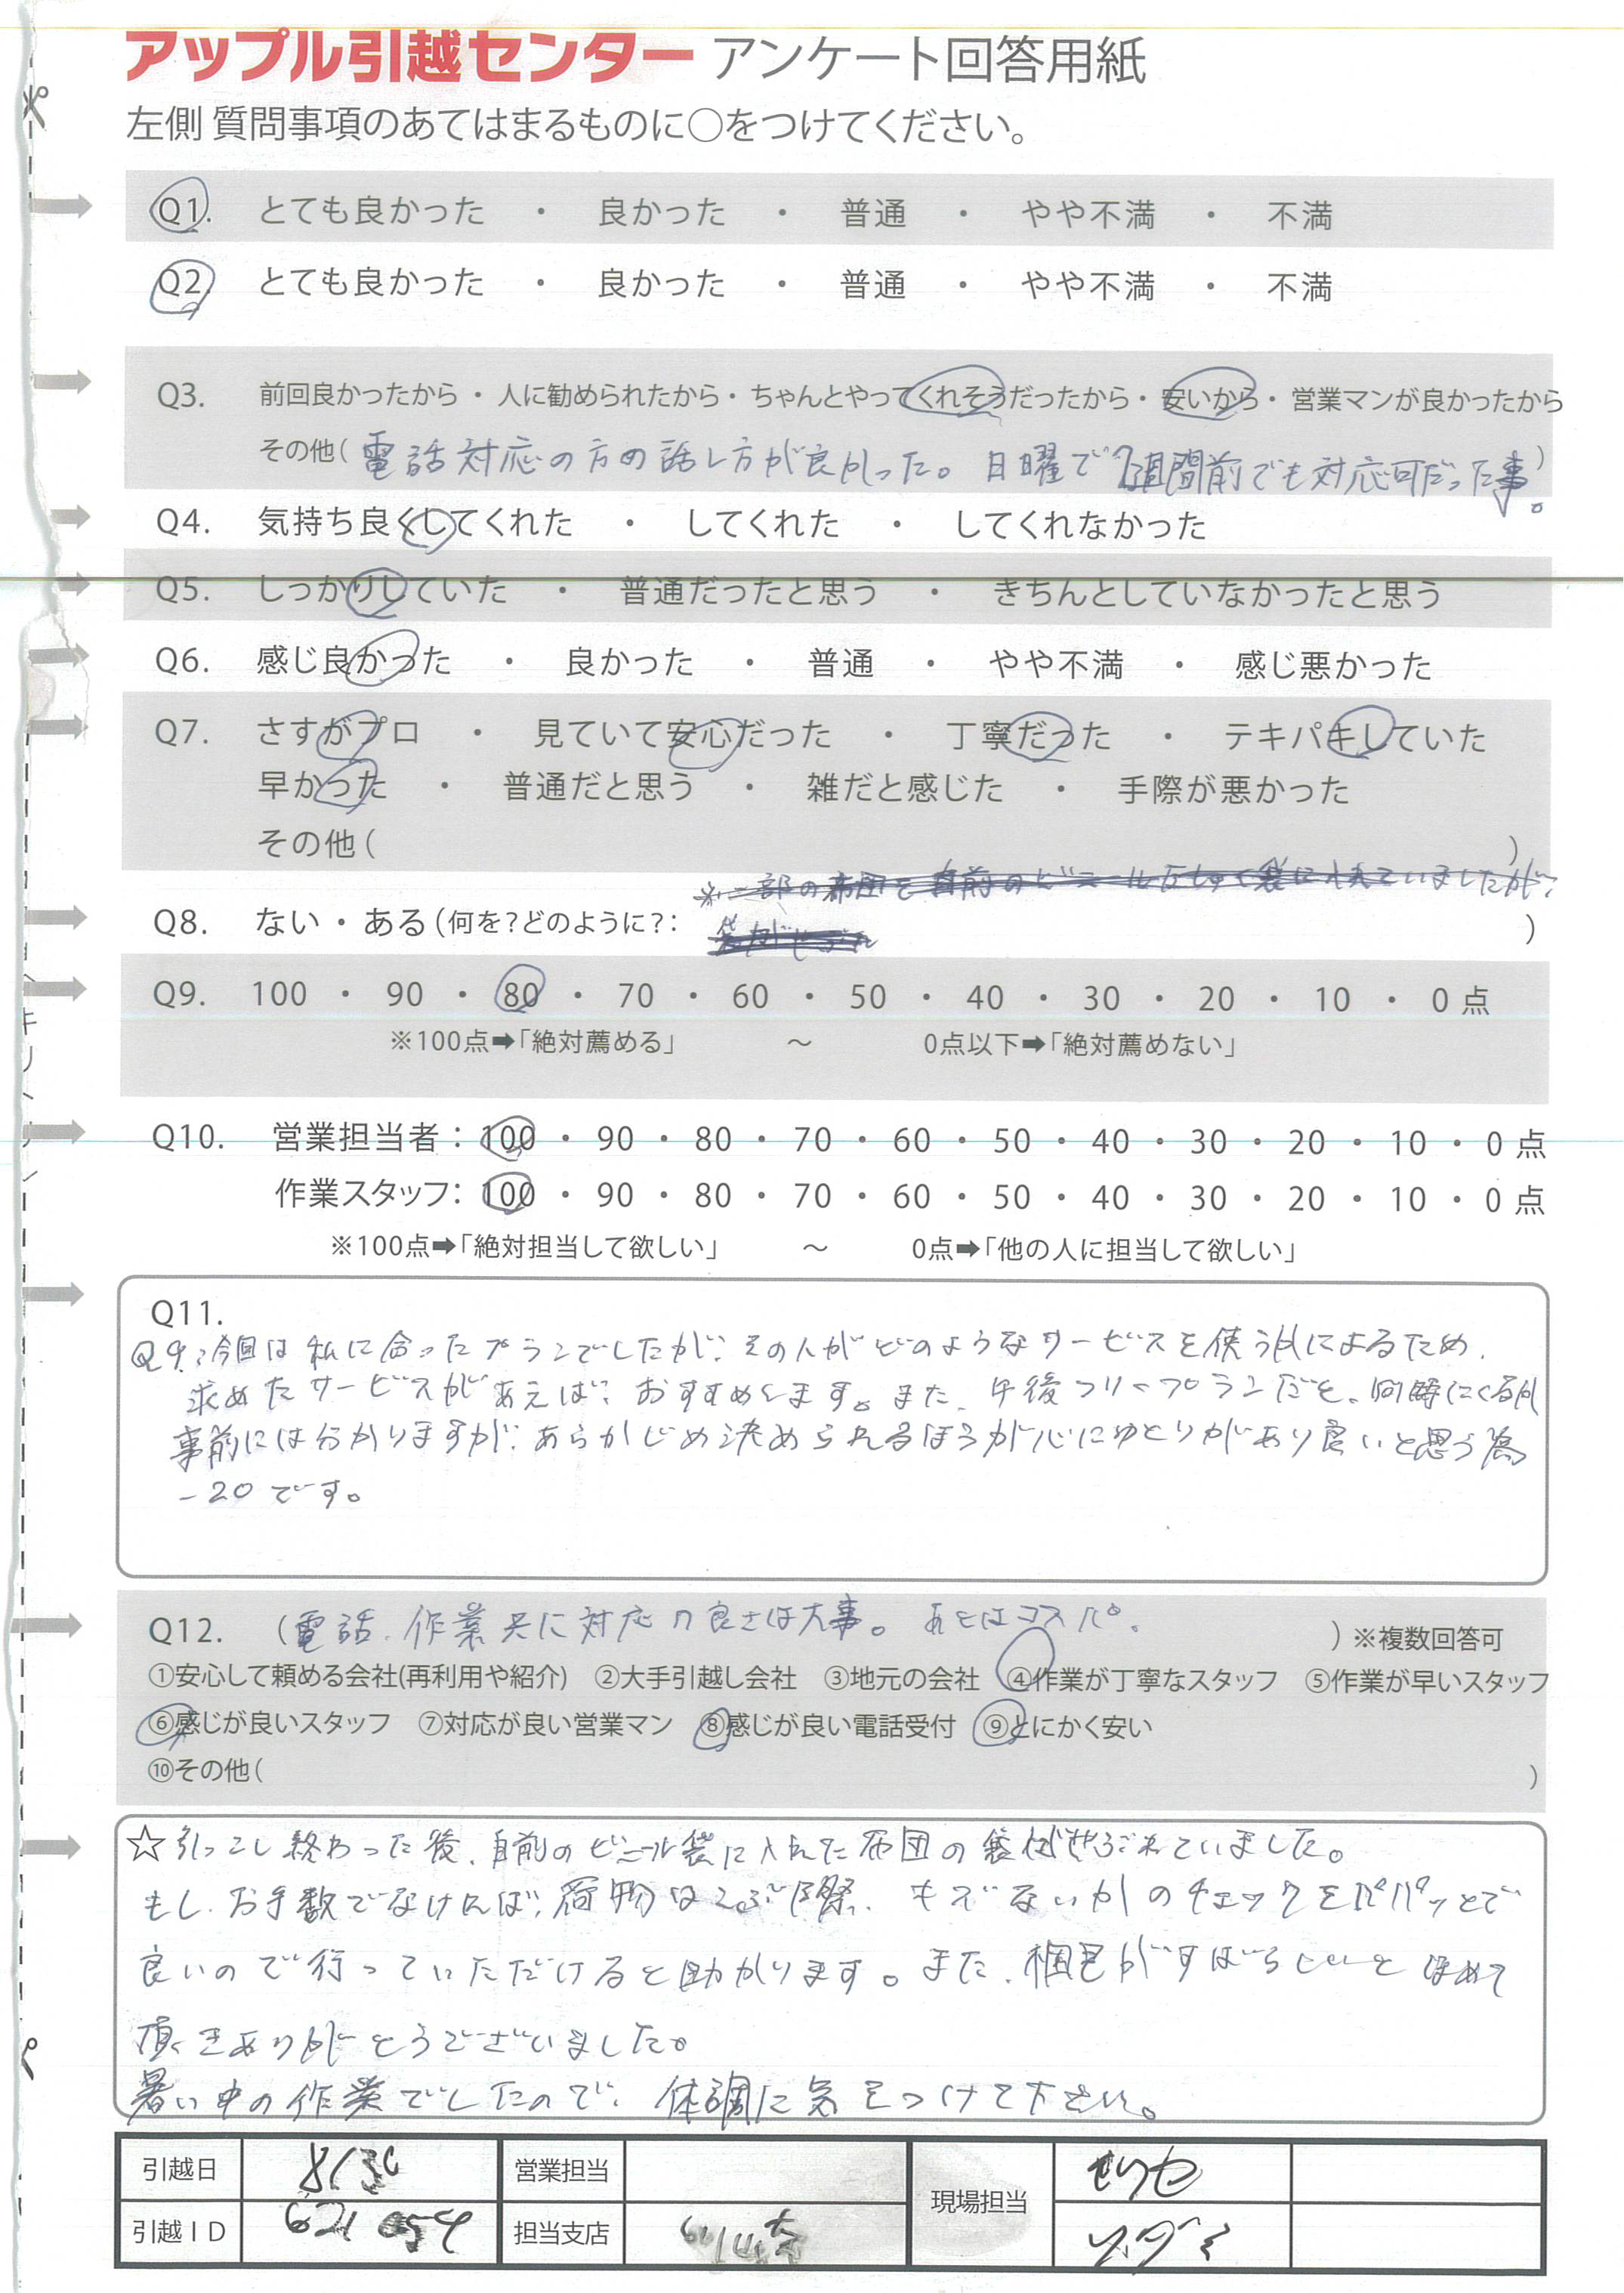 アップル引越センター アンケート回答用紙
左側 質問事項のあてはまるものに○をつけてください。
Q1. とても良かった ・ 良かった ・ 普通 ・ やや不満 ・ 不満
Q2. とても良かった ・ 良かった ・ 普通 ・ やや不満 ・ 不満
Q3. 前回良かったから ・ 人に勧められたから ・ ちゃんとやってくれそうだったから ・ 安いから ・ 営業マンが良かったから
その他( 電話対応の方の話し方が良かった。日曜で1週間前でも対応可だった事。)
Q4. 気持ち良くしてくれた ・ してくれた ・ してくれなかった
Q5. しっかりしていた ・ 普通だったと思う ・ きちんとしていなかったと思う
Q6. 感じ良かった ・ 良かった ・ 普通 ・ やや不満 ・ 感じ悪かった
Q7. さすがプロ ・ 見ていて安心だった ・ 丁寧だった ・ テキパキしていた
早かった ・ 普通だと思う ・ 雑だと感じた ・ 手際が悪かった
その他( )
※一部の布団を自前のビニール袋に入れていましたが、
Q8. ない ・ ある (何を?どのように?: )
Q9. 100 ・ 90 ・ 80 ・ 70 ・ 60 ・ 50 ・ 40 ・ 30 ・ 20 ・ 10 ・ 0 点
※100点➡「絶対薦める」 ～ 0点以下➡「絶対薦めない」
Q10. 営業担当者 : 100 ・ 90 ・ 80 ・ 70 ・ 60 ・ 50 ・ 40 ・ 30 ・ 20 ・ 10 ・ 0 点
作業スタッフ: 100 ・ 90 ・ 80 ・ 70 ・ 60 ・ 50 ・ 40 ・ 30 ・ 20 ・ 10 ・ 0 点
※100点➡「絶対担当して欲しい」 ～ 0点➡「他の人に担当して欲しい」
Q11.
Q9:今回は私に合ったプランでしたが、その人がどのようなサービスを使うかによるため、
求めたサービスがあえば、おすすめします。また、午後フリープランだと、何時にくるか
事前には分かりますが、あらかじめ決められるほうが心にゆとりがあり良いと思う為
-20です。
Q12. (電話、作業共に対応の良さは大事。あとはコスパ。 ) ※複数回答可
①安心して頼める会社(再利用や紹介) ②大手引越し会社 ③地元の会社 ④作業が丁寧なスタッフ ⑤作業が早いスタッフ
⑥感じが良いスタッフ ⑦対応が良い営業マン ⑧感じが良い電話受付 ⑨とにかく安い
⑩その他( )
☆引っこし終わった後、自前のビニール袋に入れた布団の袋がやぶれていました。
もし、お手数でなければ、荷物はこぶ際、キズないかのチェックをパパッとで
良いので行っていただけると助かります。また、梱包がすばらしいとほめて
頂きありがとうございました。
暑い中の作業でしたので、体調に気をつけて下さい。
引越日 8/30 営業担当 現場担当
引越ID 621054 担当支店
キリトリ